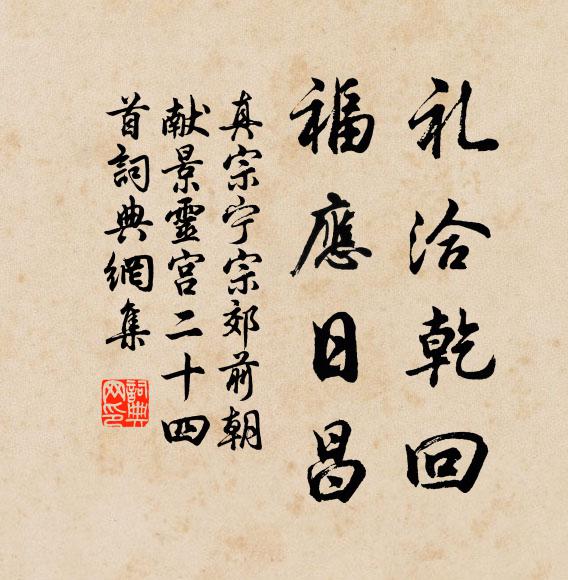 礼洽乾回
福應日昌
真宗宁宗郊前朝
献景靈宫二十四
首詞典網集
詞典网印